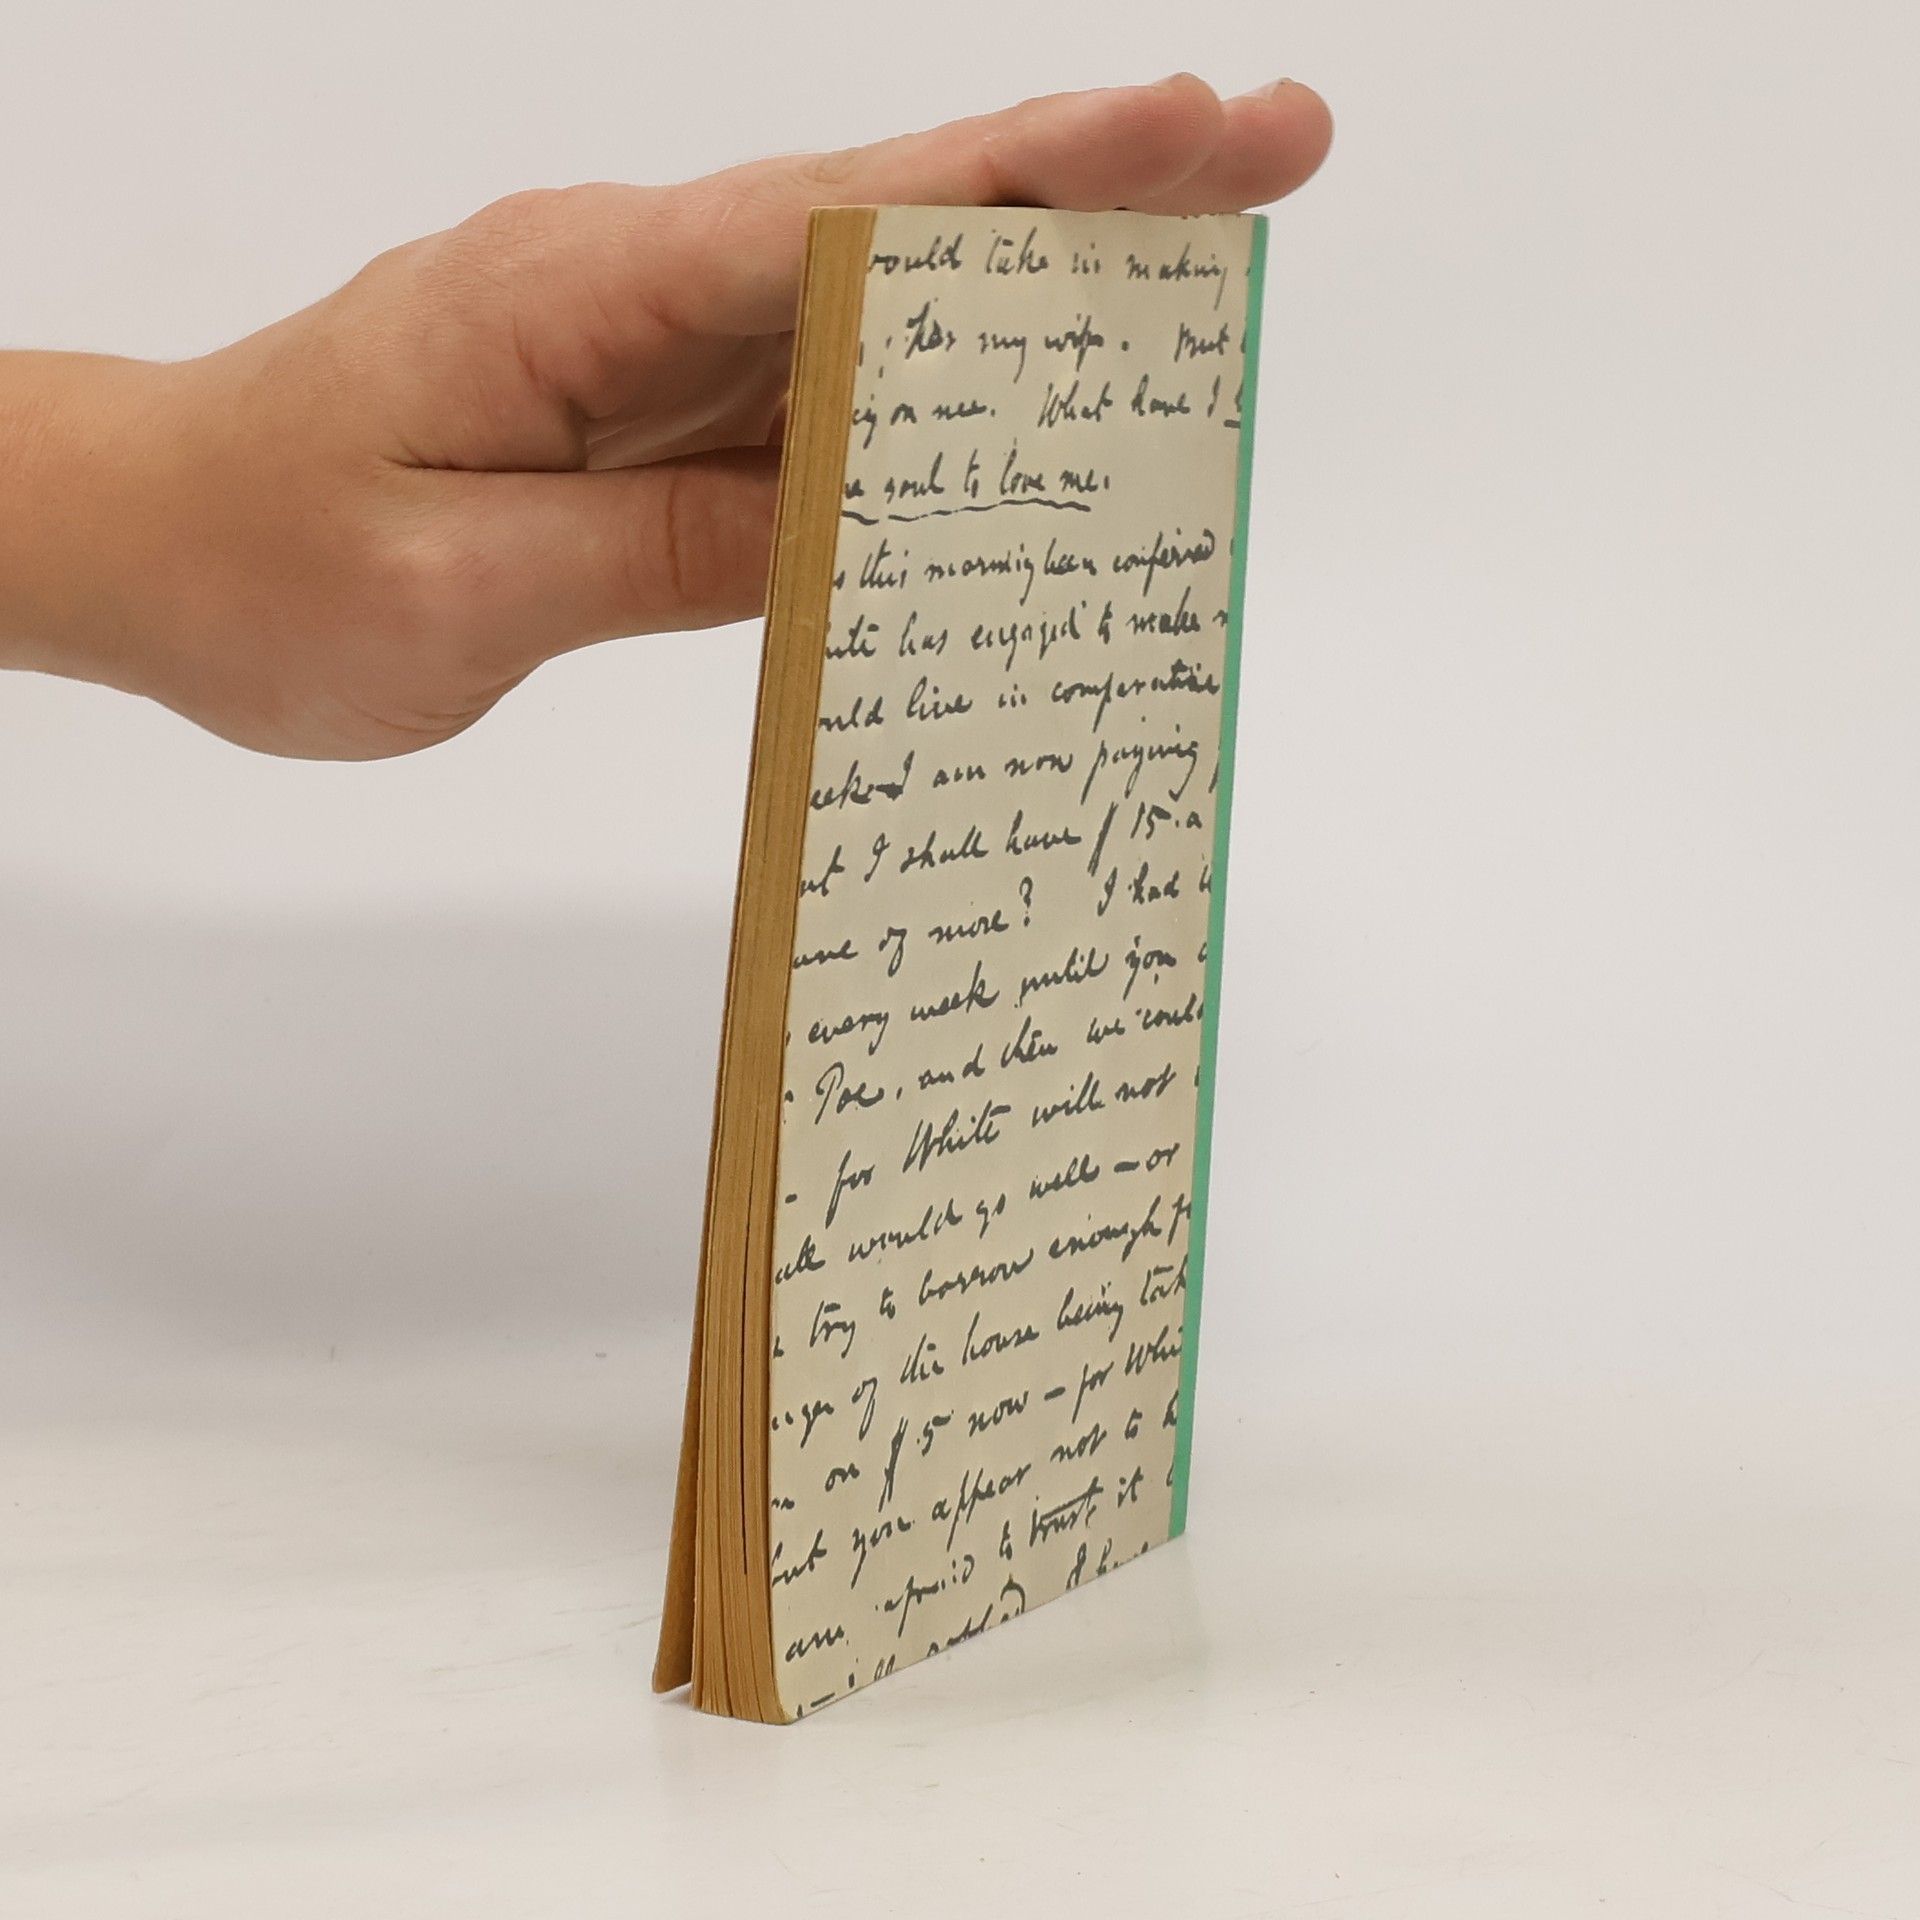 would take in making
for my wife. But
ing on me. What have I
soul to love me.
this morning been conferred
has engaged to make
ould live in comparative
eek—I am now paying
ut I shall have $15 a
ave of more? I had
every week until you
Poe, and then we could
- for White will not
all would go well — or
try to borrow enough
nger of the house being tak
on $5 now — for Whi
but you appear not to
am afraid to trust it
I have